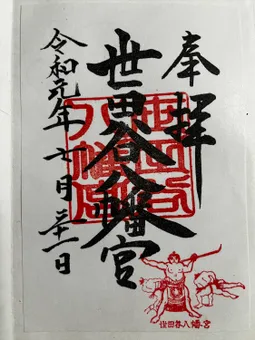 奉拝
世田谷八幡宮
世田谷
八幡宮
令和元年七月二十一日
世田谷八幡宮